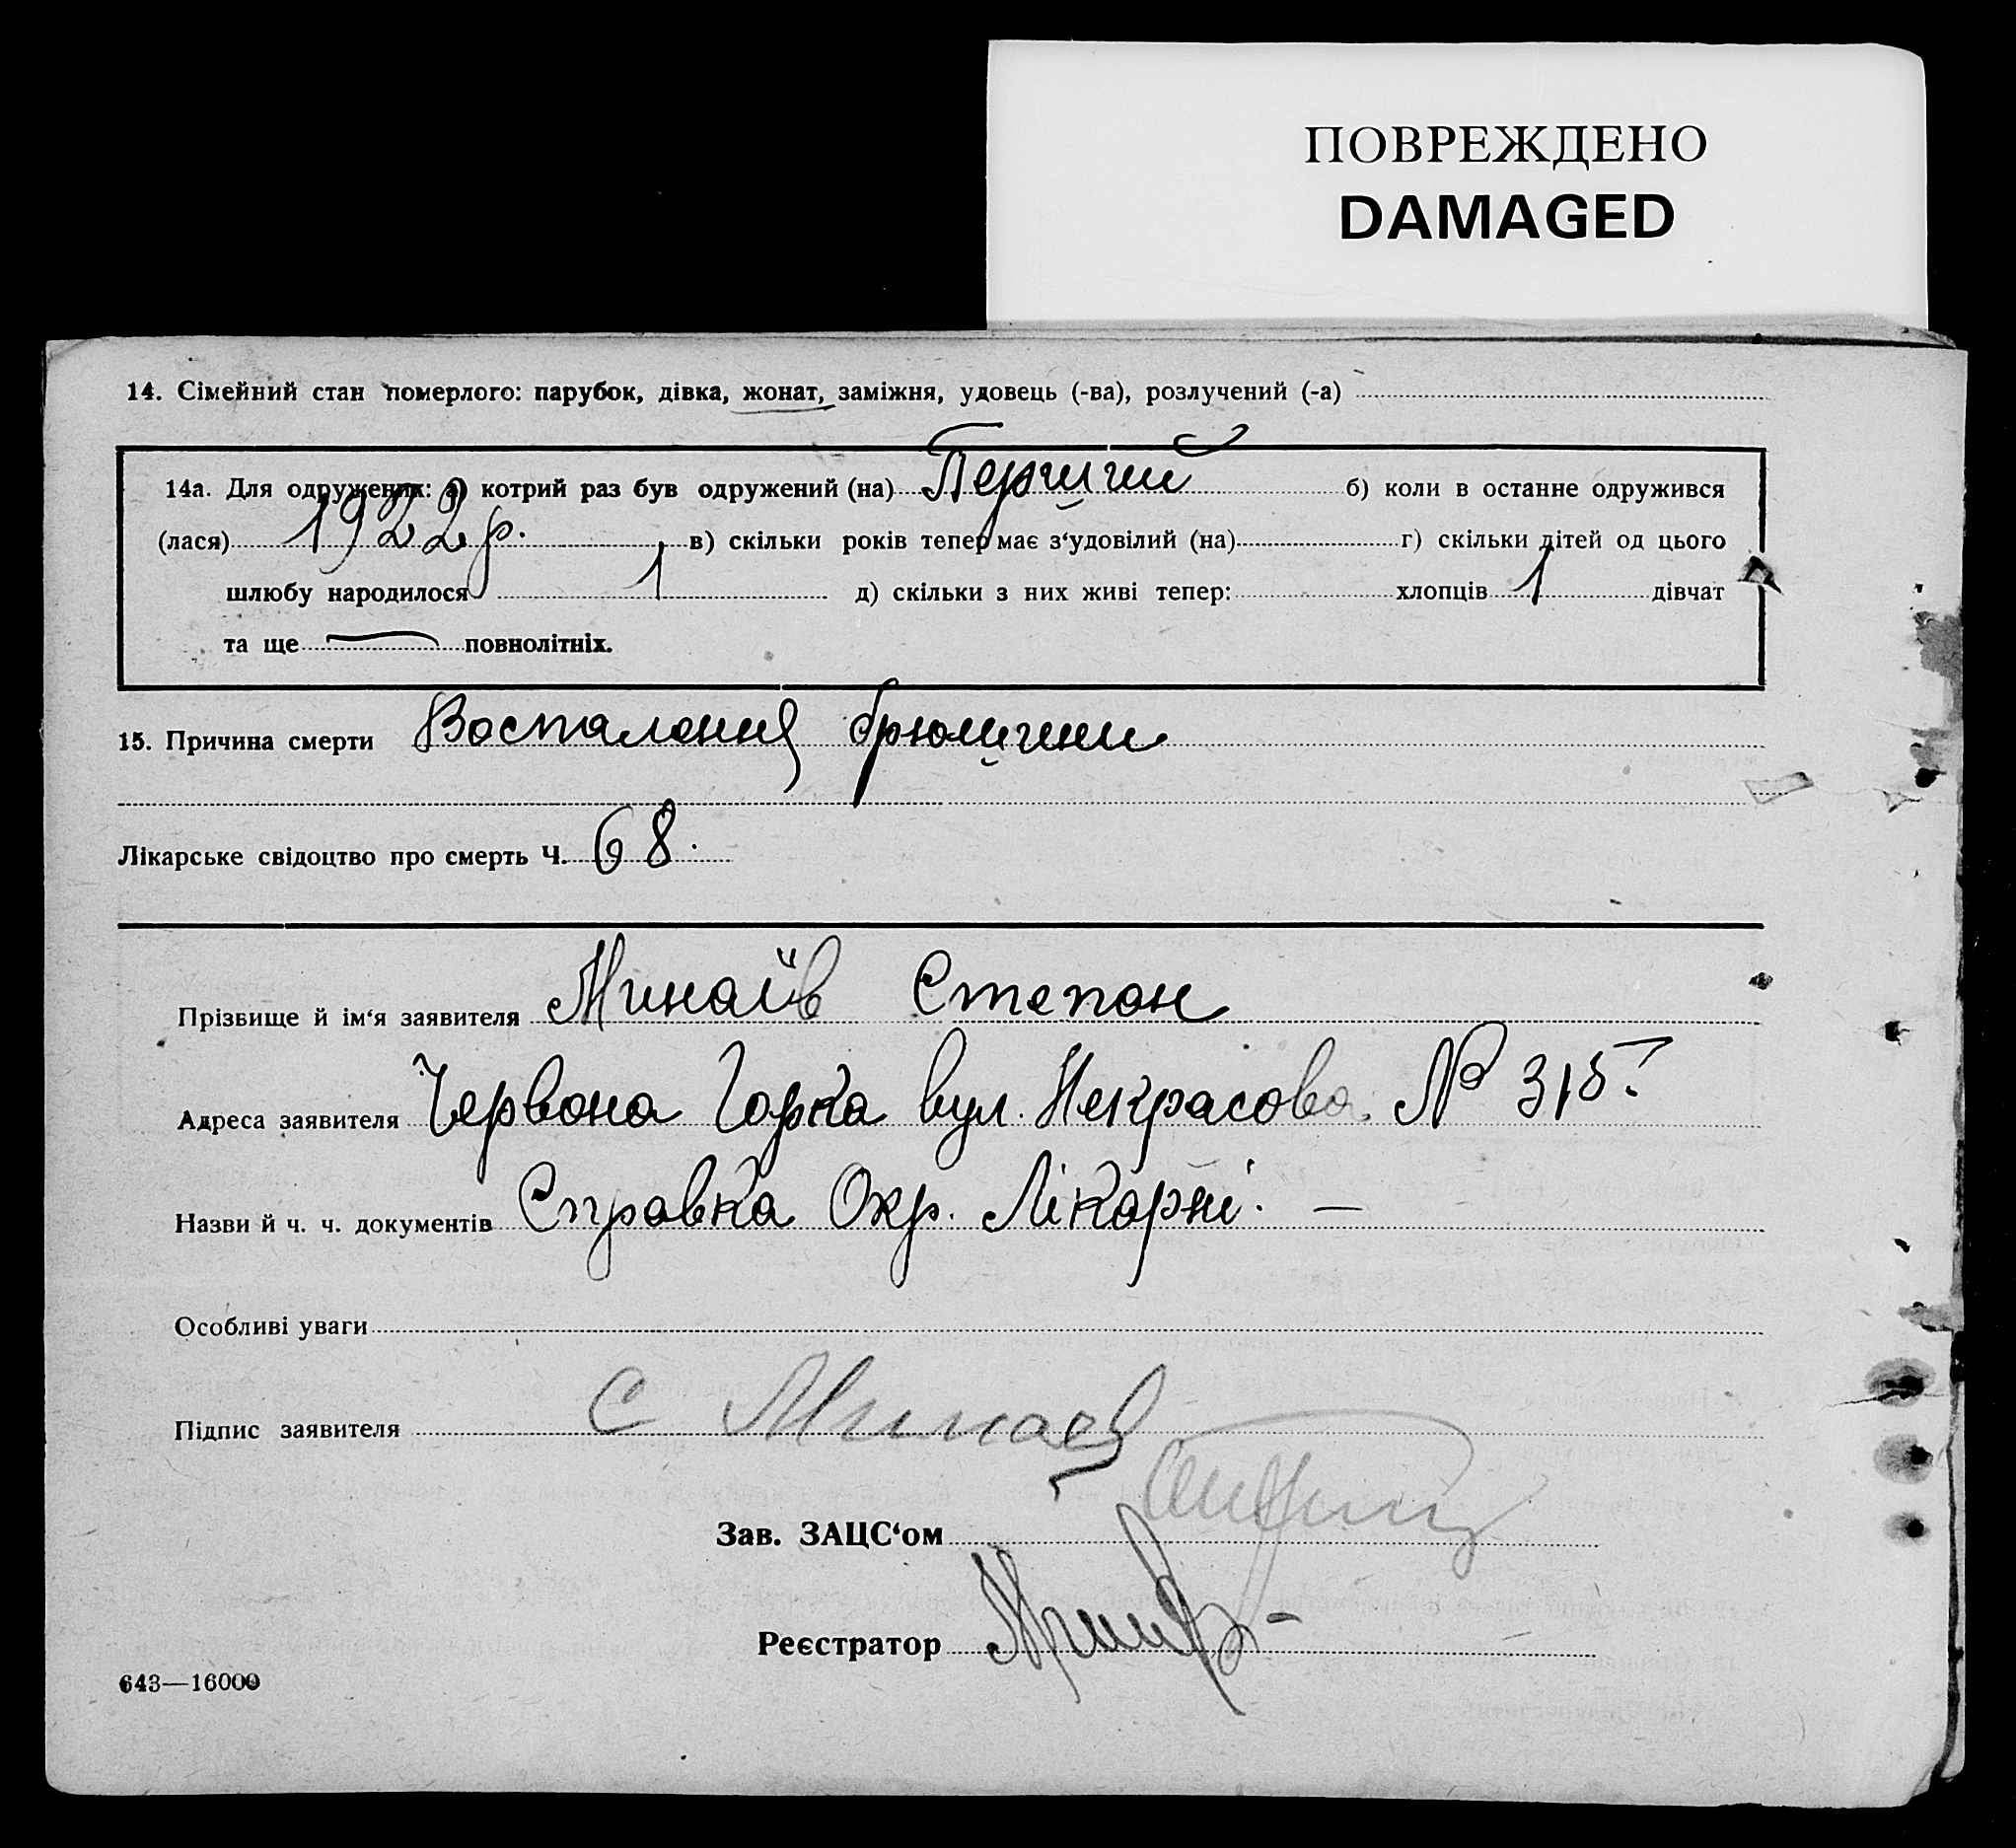 ПОВРЕЖДЕНО
DAMAGED
14. Сімейний стан померлого: парубок, дівка, жонат, заміжня, удовець (-ва), розлучений (-а)
14а. Для одружених: а) котрий раз був одружений (на) Перший б) коли в останне одружився
(лася) 1922 р. в) скільки років тепер має з‘удовілий (на) г) скільки дітей од цього
шлюбу народилося 1 д) скільки з них живі тепер: хлопців 1 дівчат
та ще — повнолітніх.
15. Причина смерти Воспалення брюшини
Лікарське свідоцтво про смерть Ч. 68.
Прізвище й ім‘я заявителя Минаїв Степан
Адреса заявителя Червона Горка вул. Некрасова № 315.
Назви й ч. ч. документів Справка Окр. Лікарні. —
Особливі уваги
Підпис заявителя С Минаев
Зав. ЗАЦС‘ом
Реєстратор
643—16000